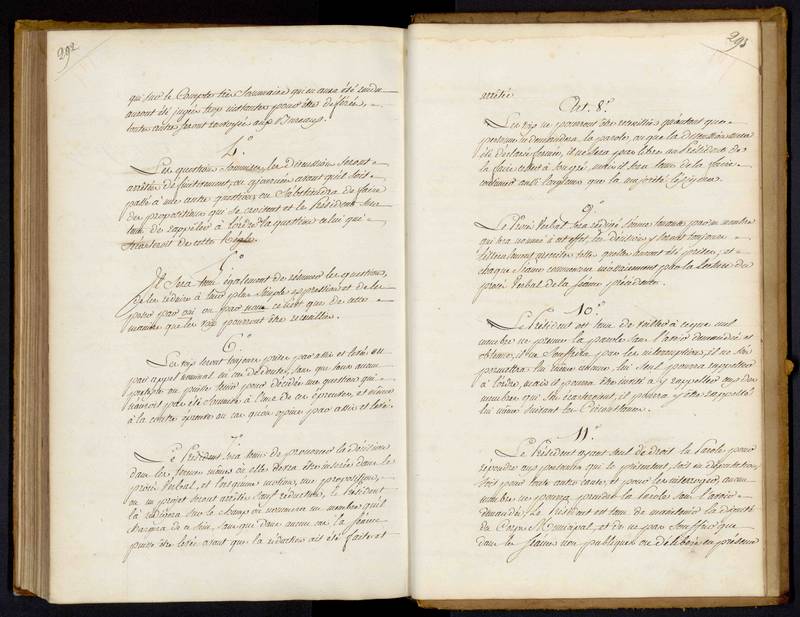 292
qui sur le Compte très Sommaire qui en aura été rendu
auront été jugées trop instantes pour être différées,
toutes autres seront renvoyées aux Bureaux.
4.°
Les questions Soumises à la discussion seront
arrêtées définitivement, ou ajournées avant qu'il soit
passé à une autre question, ou Substituera de faire
des propositions qui se croisent et le Président sera
tenu de rappeler à l'ordre de la question celui qui
s'écarteroit de cette règle.
5.°
Il Sera tenu également de résumer les questions,
de les réduire à leur plus Simple expression et de les
poser par oui ou par non, ce n'est que de cette
manière que les voix pourront être recueillies.
6.°
Les voix seront toujours prises par assis et levés ou
par appel nominal en cas de doutes, sans que sous aucun
prétexte on puisse tenir pour décidée une question qui
n'auroit pas été Soumise à l'une de ces épreuves, et même
à la contre épreuve au cas qu'on opine par assis et levé.
7.°
Le Président sera tenu de prononcer la décision
dans les formes mêmes où elle devra être insérée dans le
procès Verbal, et lorsqu'une motion, une proposition,
ou un projet seront arrêtés Sauf rédaction, le Président
la rédigera sur le champ ou nommera un membre qu'il
chargera de ce Soin, sans que dans aucun cas la séance
puisse être levée avant que la rédaction ait été faite et
293
arrêtée
Art. 8.°
Les voix ne pourront être recueillies qu'autant que
personne ne demandera la parole, ou que la discussion aura
été déclarée fermée, il ne sera pas libre au Président de
la faire cesser à Son gré, mais il sera tenu de la faire
continuer aussi longtems que la majorité l'exigera.
9.°
Le Procès Verbal Sera rédigé Séance tenante par un membre
qui sera nommé à cet effet, les décisions y seront toujours
littéralement portées telles qu'elles auront été prises, et
chaque Séance commencera nécessairement par la lecture du
procès Verbal de la Séance précédente.
10.°
Le Président est tenu de veiller à ce que nul
membre ne prenne la parole sans l'avoir demandée et
obtenue, il ne Souffrira pas les interruptions, il ne s'en
permettra lui même aucune, lui Seul pourra rappeller
à l'ordre, mais il pourra être invité à y rappeller ceux des
membres qui s'en écarteroient, il pourra y être rappellé
lui même suivant les Circonstances.
11.°
Le Président ayant seul de droit la Parole, pour
répondre aux personnes qui se présentent, soit en députation,
soit pour toute autre cause, et pour les interroger, aucun
membre ne pourra prendre la Parole sans l'avoir
demandée, Le Président est tenu de maintenir la dignité
du Corps Municipal, et de ne pas Souffrir que
dans les Séances non publiques on délibère en présence